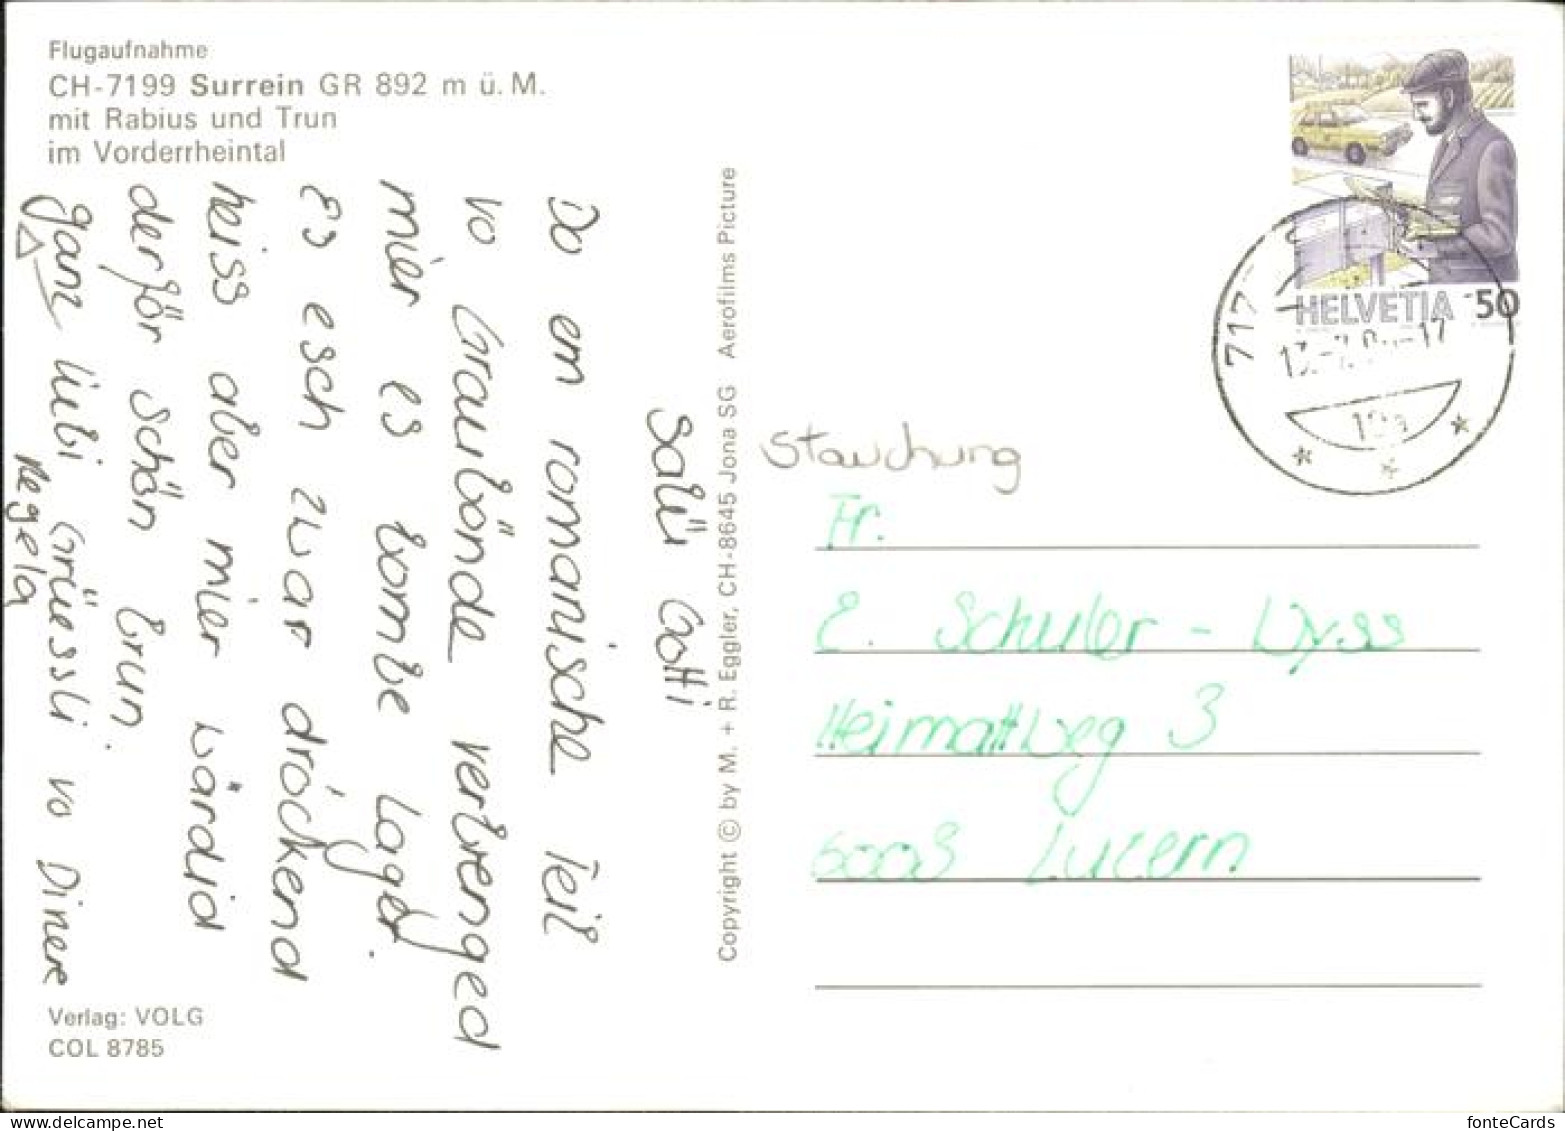 Flugaufnahme
CH-7199 Surrein GR 892 m ü. M.
mit Rabius und Trun
im Vorderrheintal
Salü Gotti
Do em romanische Teil
vo Graubönde verbrenged
mier es bombe Lager.
Es esch zwar dröckend
heiss aber mier wärdid
derför schön brun.
ganz liebi Grüessli vo Dinere
Regela
Verlag: VOLG
COL 8785
Copyright © by M. + R. Eggler, CH-8645 Jona SG Aerofilms Picture
HELVETIA 50
717
Stauchung
Fr.
E. Schuler - Wyss
Heimattweg 3
6003 Luzern
fonteCards